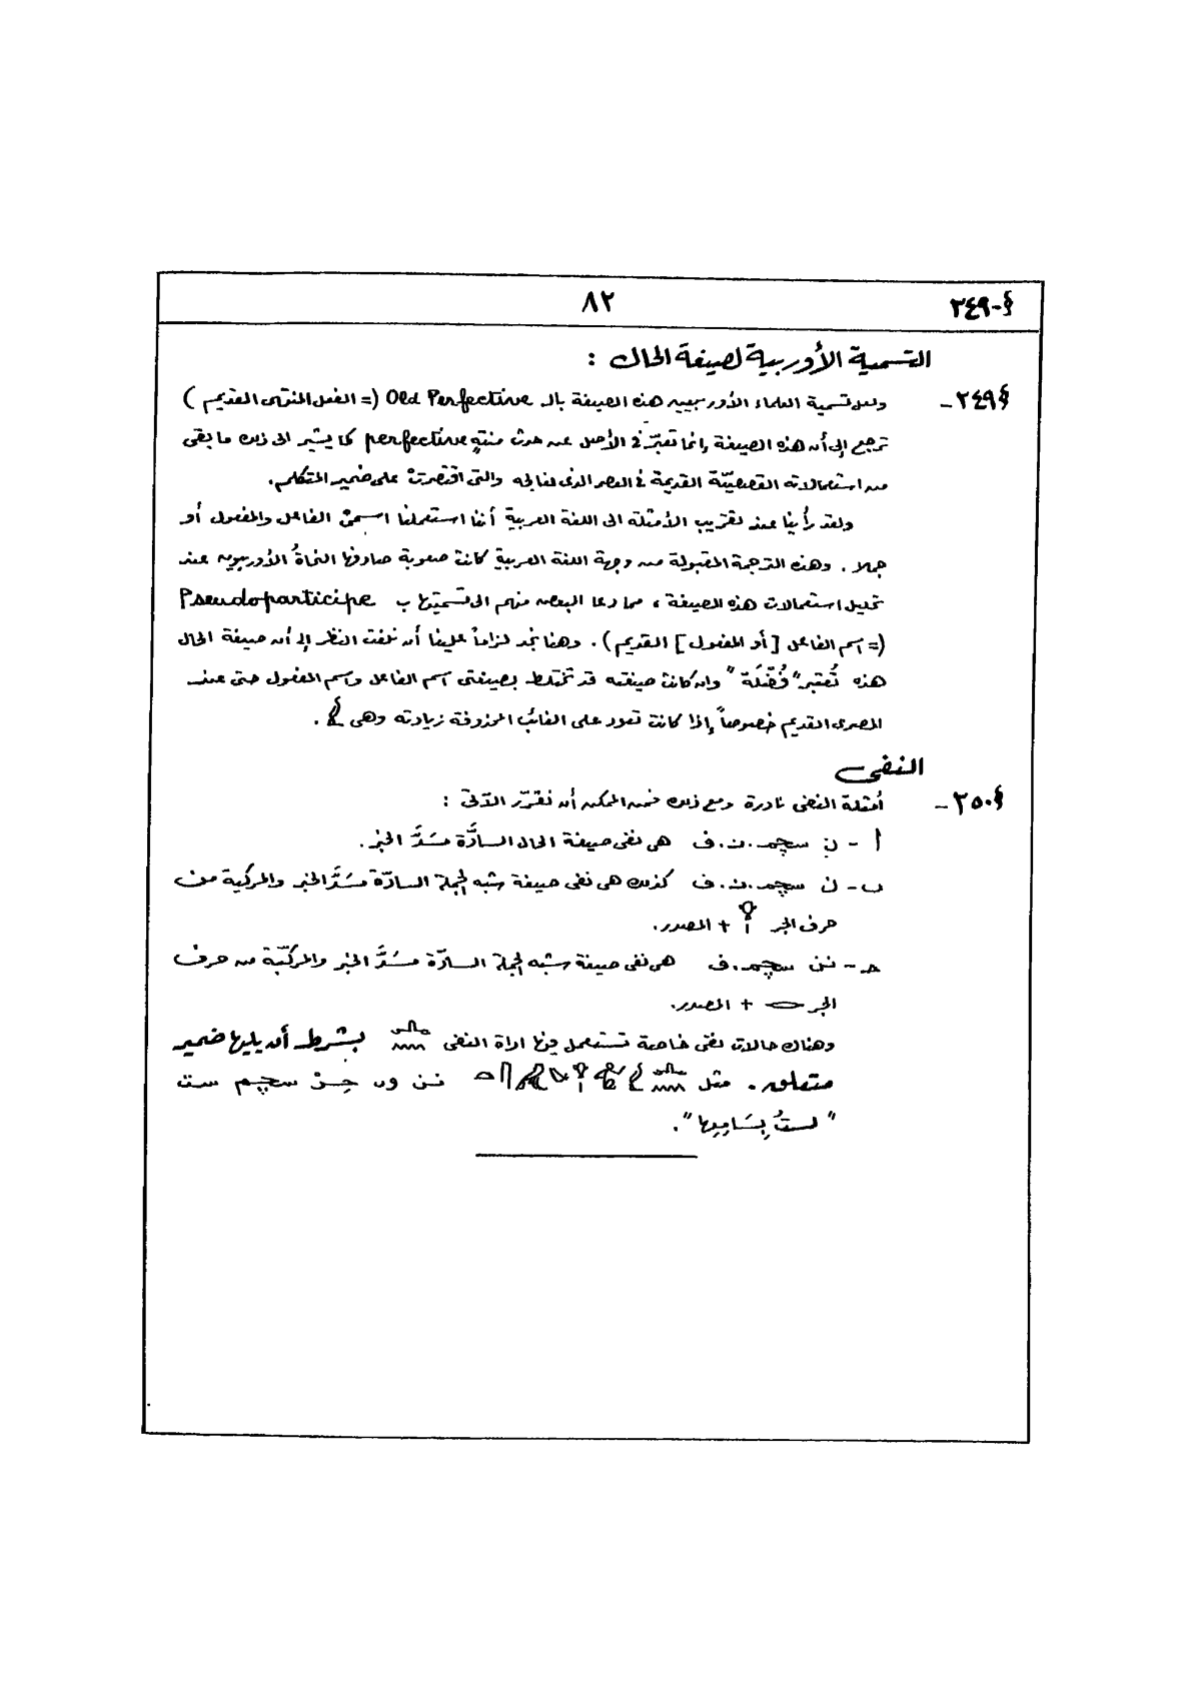 §-٢٤٩
٨٢
التسمية الأوربية لصيغة الحال :
§٢٤٩- ولعل تسمية العلماء الأوربيين هذه الصيغة بالـ Old Perfective (= الفعل المنتهى القديم )
ترجع إلى أن هذه الصيغة إنما تعبّر فى الأصل عن حدث منتهٍ perfective كما يشير الى ذلك ما بقى
من استعمالاته القصصيّة القديمة فى العصر الذى نعالجه والتى اقتصرتْ على ضمير المتكلم.
ولقد رأينا عند تقريب الأمثلة الى اللغة العربية أننا استعملنا اسمىْ الفاعل والمفعول أو
جملا . وهذه الترجمة المقبولة من وجهة اللغة العربية كانت صعوبة صادفها النحاةُ الأوربيون عند
تحليل استعمالات هذه الصيغة ، مما دعا البعض منهم الى تسميتها ب Pseudoparticipe
(= اسم الفاعل [أو المفعول] القديم ). وهنا نجد لزاماً علينا أن نلفت النظر إلى أن صيغة الحال
هذه تُعتبر "فُضْلَة" وإن كانت صيغته قد تختلط بصيغتى اسم الفاعل واسم المفعول حتى عند
المصرى القديم خصوصاً إذا كانت تعود على الغائب المحذوفة زيادته وهى 𓇋 .
النفى
§٢٥٠- أمثلة النفى نادرة ومع ذلك فمن الممكن أن نقرّر الآتى :
أ - ن سچم.ن.ف هى نفى صيغة الحال السادَّة مسَدَّ الخبر .
ب- ن سچم.ن.ف كذلك هى نفى صيغة شبه الجملة السادّة مسَدَّ الخبر والمركبة من
حرف الجر 𓁷 + المصدر.
جـ- نن سچم.ف هى نفى صيغة شبه الجملة السادّة مسَدَّ الخبر والمركّبة من حرف
الجر 𓂋 + المصدر.
وهناك حالات نفى خاصة تستعمل فيها اداة النفى 𓂜𓈖 بشرط أن يليها ضمير
متعلق . مثل نن وى حِرْ سچم ست
"لستُ بِسَامِعِها".